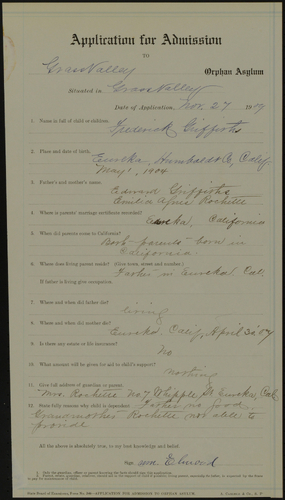 Application for Admission
TO
Grass Valley Orphan Asylum
Situated in Grass Valley
Date of Application, Nov. 27 1907
1. Name in full of child or children.
Frederick Griffiths
2. Place and date of birth.
Eureka, Humboldt Co, Calif
May 1, 1904
3. Father's and mother's name.
Edward Griffiths
Emilia Agnes Rochette
4. Where is parents' marriage certificate recorded?
Eureka, California
5. When did parents come to California?
Both parents born in
California
6. Where does living parent reside? (Give town, street and number.)
Father in Eureka, Cal
If father is living give occupation
7. Where and when did father die?
living
8. Where and when did mother die?
Eureka, Calif, April 3, 07
9. Is there any estate or life insurance?
No
10. What amount will be given for aid to child's support?
nothing
11. Give full address of guardian or parent.
Mrs. Rochette No 7 Whipple St Eureka, Cal
12. State fully reasons why child is dependent.
Father no good.
Grandmother Rochette not able to
provide
All the above is absolutely true, to my best knowledge and belief.
Sign. Mrs. Elwood